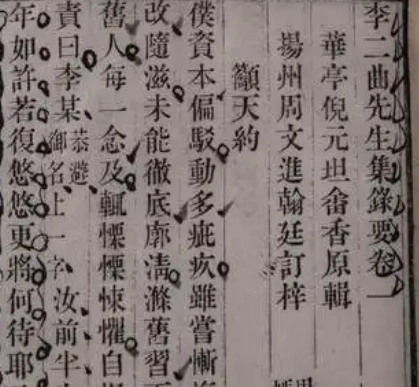 李二曲先生集錄要卷一
華亭倪元坦畬香原輯
揚州周文進翰廷訂梓
籲天約
僕資本偏駁動多疵疚雖嘗慚
改隨滋未能徹底廓淸滌舊習
舊人每一念及輒慄慄悚懼自
責曰李某恭避御名上一字汝前半
年如許若復悠悠更將何待耶